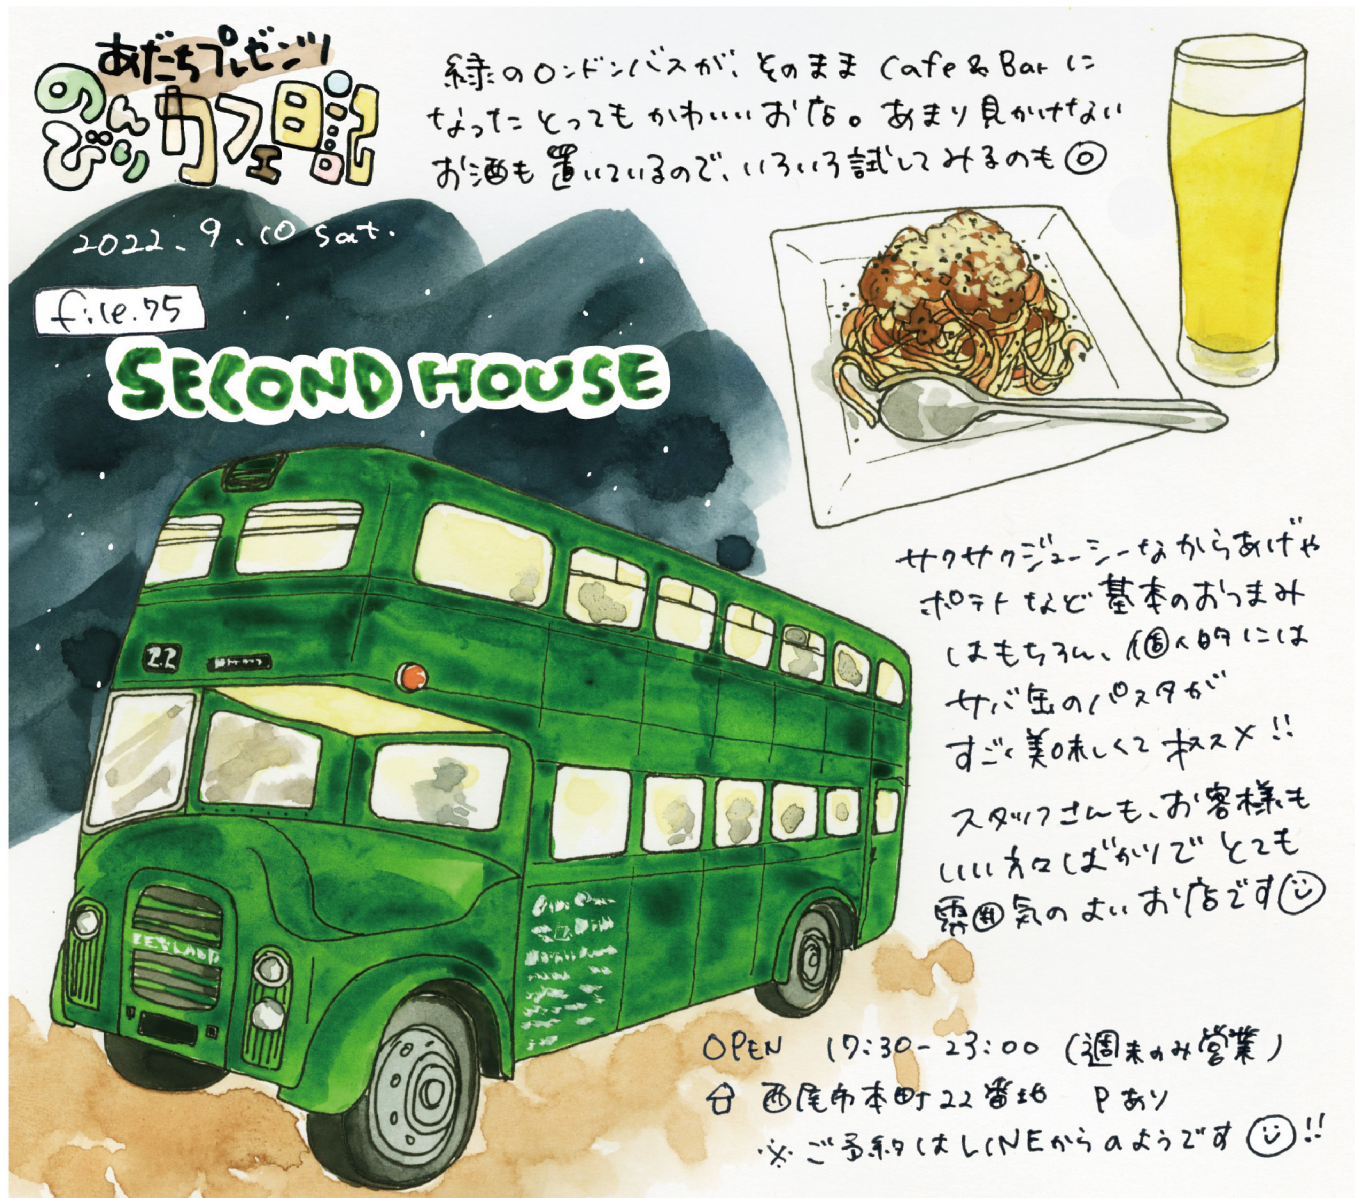 あだちプレゼンツ
のんびりカフェ日記
緑のロンドンバスが、そのまま Cafe & Bar に
なったとってもかわいいお店。あまり見かけない
お酒も置いているので、いろいろ試してみるのも◎
2022.9.10 sat.
file.75
SECOND HOUSE
サクサクジューシーなからあげや
ポテトなど基本のおつまみ
はもちろん、個人的には
サバ缶のパスタが
すごく美味しくてオススメ!!
スタッフさんも、お客様も
いい方々ばかりでとても
雰囲気のよいお店です
22
LEYLAND
OPEN 17:30-23:00 (週末のみ営業)
西尾市本町22番地 Pあり
※ご予約はLINEからのようです!!